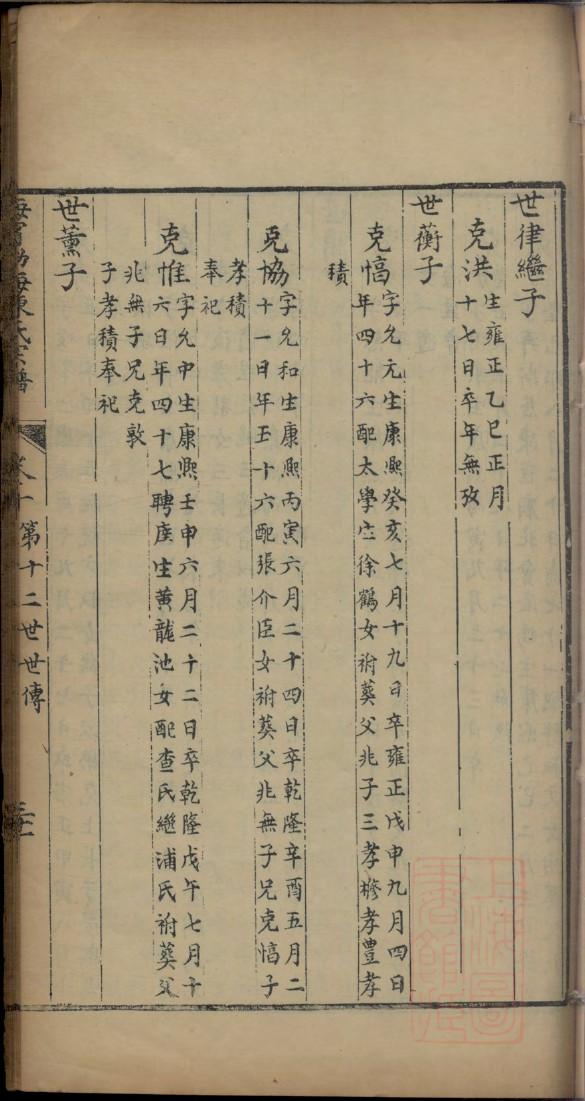 世律繼子
克洪生雍正乙巳正月
十七日卒年無攷
世蘅子
克愊字允元生康熙癸亥七月十九日卒雍正戊申九月四日
年四十六配太學生徐鶴女祔葬父兆子三孝 孝豊孝
積
克協字允和生康熙丙寅六月二十四日卒乾隆辛酉五月二
十一日年五十六配張介臣女祔葬父兆無子兄克愊子
孝積
奉祀
克惟字允中生康熙壬申六月二十二日卒乾隆戊午七月十
六日年四十七聘庠生黄龍池女配查氏繼浦氏祔葬父
兆無子兄克敦
子孝積奉祀
世薰子
海寧渤海陳氏宗譜
卷十 第十二世世傳